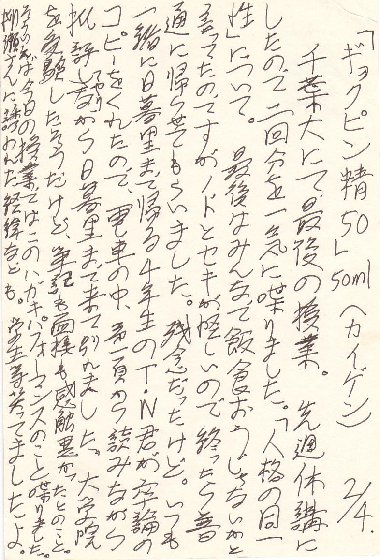 「ギョクピン精50」 50ml (カイゲン) 2/4.
千葉大にて最後の授業。先週休講に
したので二回分を一気に喋りました。「人格の同一
性」について。最後はみんなで飯食おうじゃないかと
言ってたのですがノドとセキが怪しいので終ったら普
通に帰らせてもらいました。残念だったけど。いつも
一緒に日暮里まで帰る4年生のT・N君が卒論の
コピーをくれたので、電車の中、第一頁から読みながら
批評しながら日暮里まで来て別れました。大学院
を受験したそうだけど、筆記も面接も感触悪かったとのこと。
そういえば今日の授業ではこのハガキパフォーマンスのこと喋りました。
柳瀬さんに誘われた経緯なども。学生等笑てましたよ。